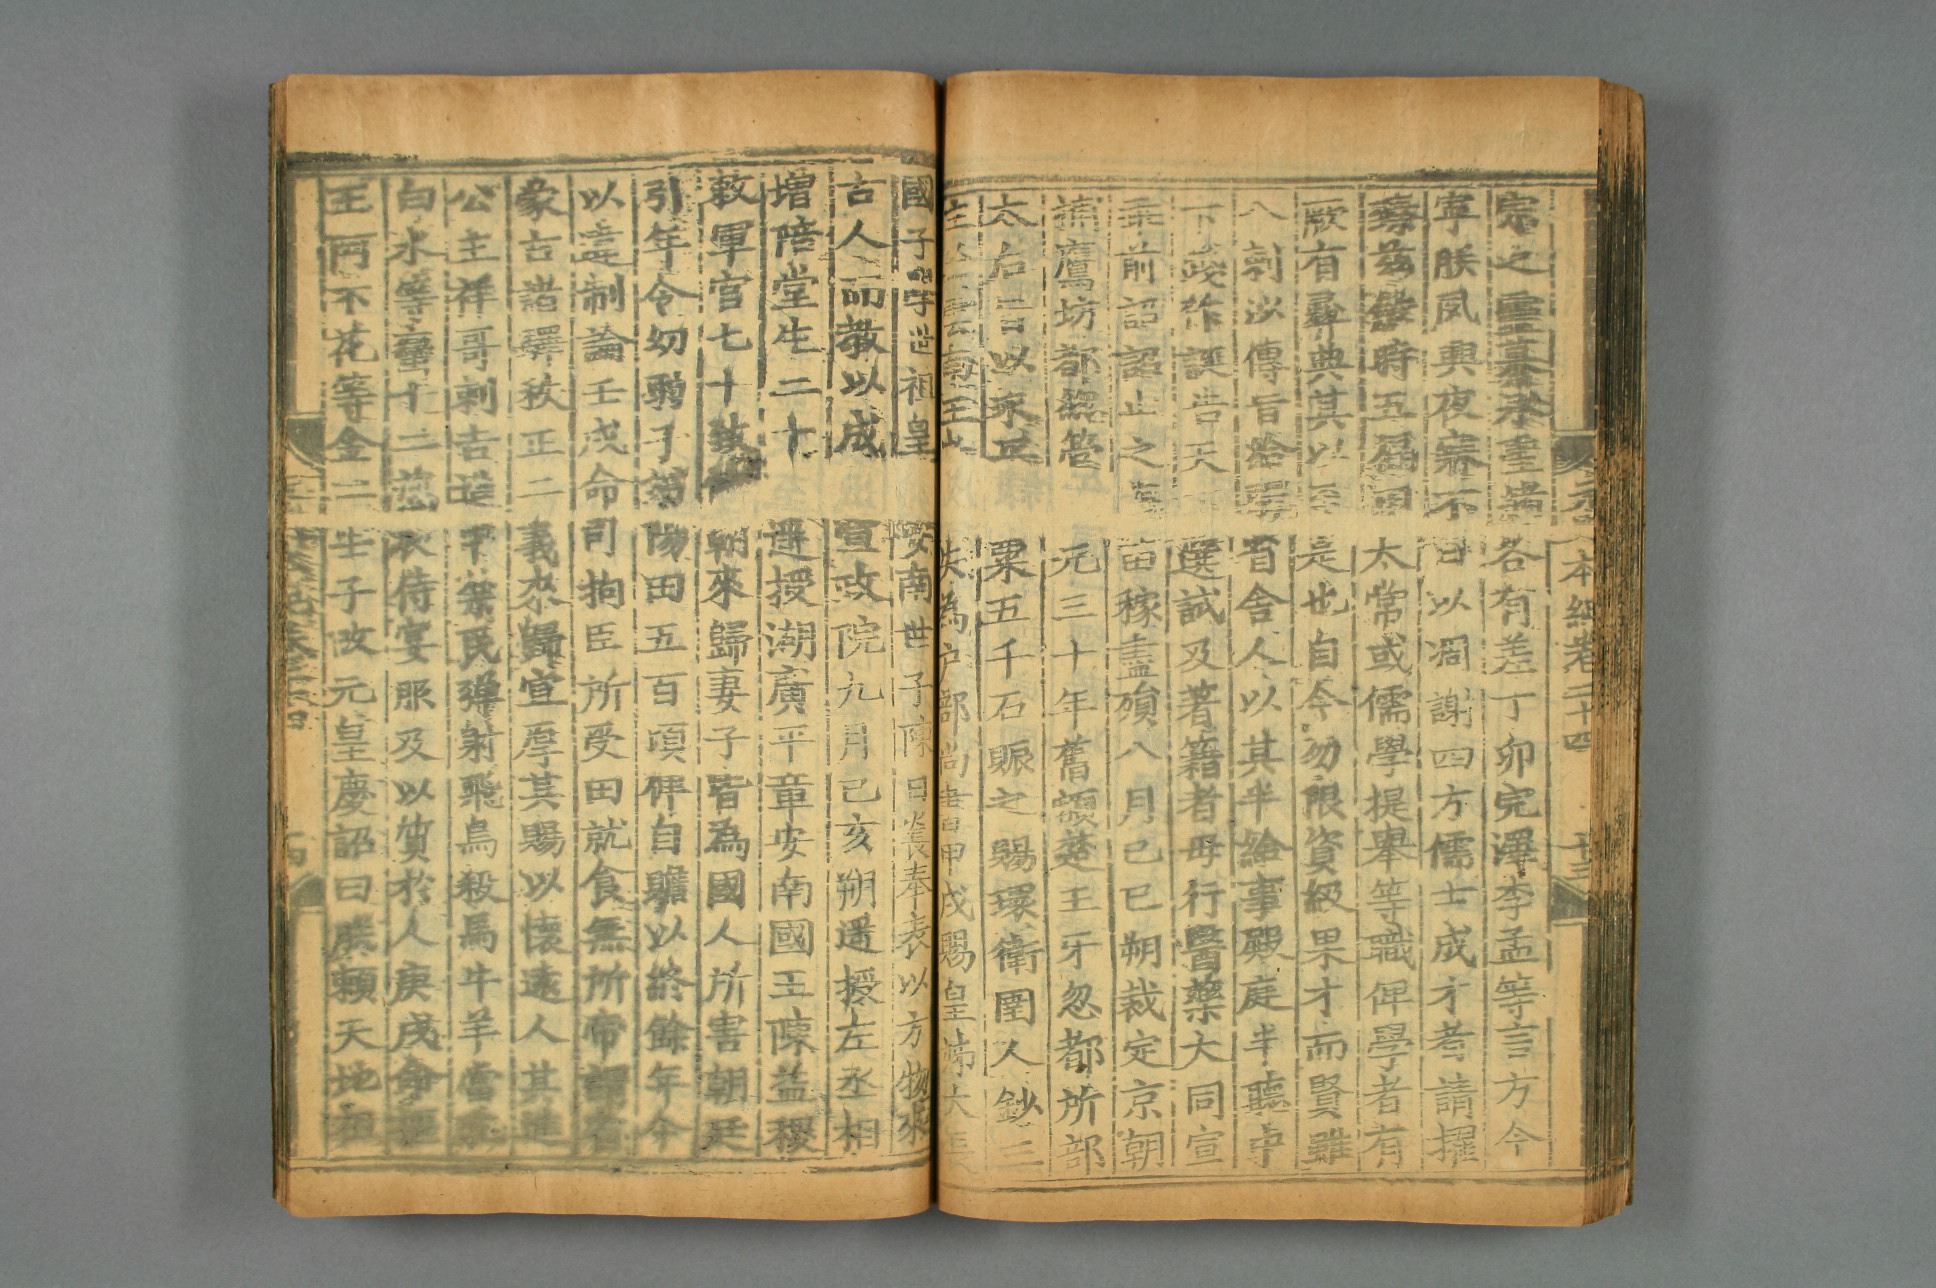 元 本紀卷二十四 十三
宗之靈纂承重緒各有差丁卯完澤李孟等言方今
寧朕夙興夜寐不日以凋謝四方儒士成才者請擢
茲 時五 太常或儒學提舉等職俾學者有
厥有彝典其以至是也自今勿限資級果才而賢雖
八剌沙傳旨給驛省舍人以其半給事殿庭半聽中
下 作誕告天 選試及著籍者毋行醫藥大同宣
前詔詔止之 苗稼盡殞八月己巳朔裁定京朝
鷹坊都總管元三十年舊額楚王牙忽都所部
太右 以來 粟五千石賑之賜環衛圉人鈔三
雲南王 失為戶部尚書甲戌賜皇姊大長
國子學世祖皇安南世子陳日㷃奉表以方物來
古人而教以成宣政院九月己亥朔遙授左丞相
增陪堂生二十遙授湖廣平章安南國王陳益稷
敕軍官七十致朝來歸妻子皆為國人所害朝廷
引年令幼弱子弟陽田五百頃俾自贍以終餘年今
以違制論壬戌命司拘臣所受田就食無所帝謂省
蒙古 驛秩正二義來歸宜厚其賜以懷遠人其進
公主祥哥剌吉進平禁民彈射飛鳥殺馬牛羊當乳
白水等驛十二 衣侍宴服及以質於人庚戌命
王阿不花等金二 子改元皇慶詔曰朕賴天地祖
十四